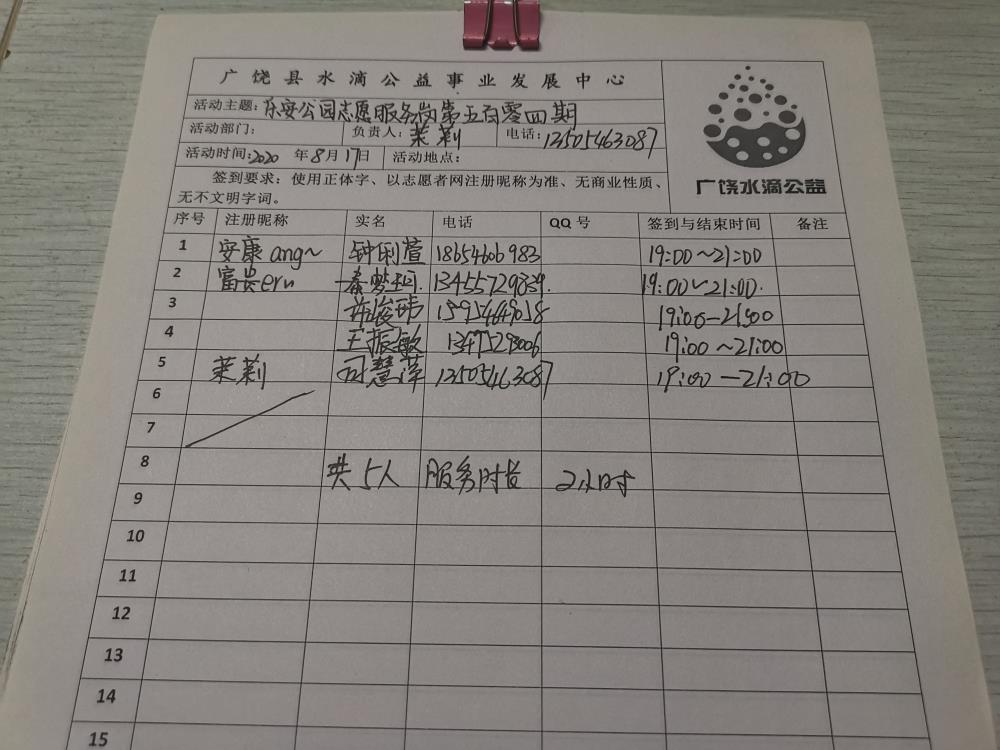 广饶县水滴公益事业发展中心
活动主题：乐安公园志愿服务岗第五百零四期
活动部门： 负责人：茉莉 电话：13505463087
活动时间：2020 年8月17日 活动地点：
签到要求：使用正体字、以志愿者网注册昵称为准、无商业性质、
无不文明字词。
广饶水滴公益
序号 注册昵称 实名 电话 QQ号 签到与结束时间 备注
1 安康ang~ 钟俐萱 18654606983 19:00~21:00
2 富贵eru 秦梦珂 13455729839. 19:00~21:00.
3 许俊玮 19:00-21:00
4 王振敏 19:00~21:00
5 茉莉 司慧萍 13505463087 19:00-21:00
6
7
8 共5人 服务时长 2小时
9
10
11
12
13
14
15